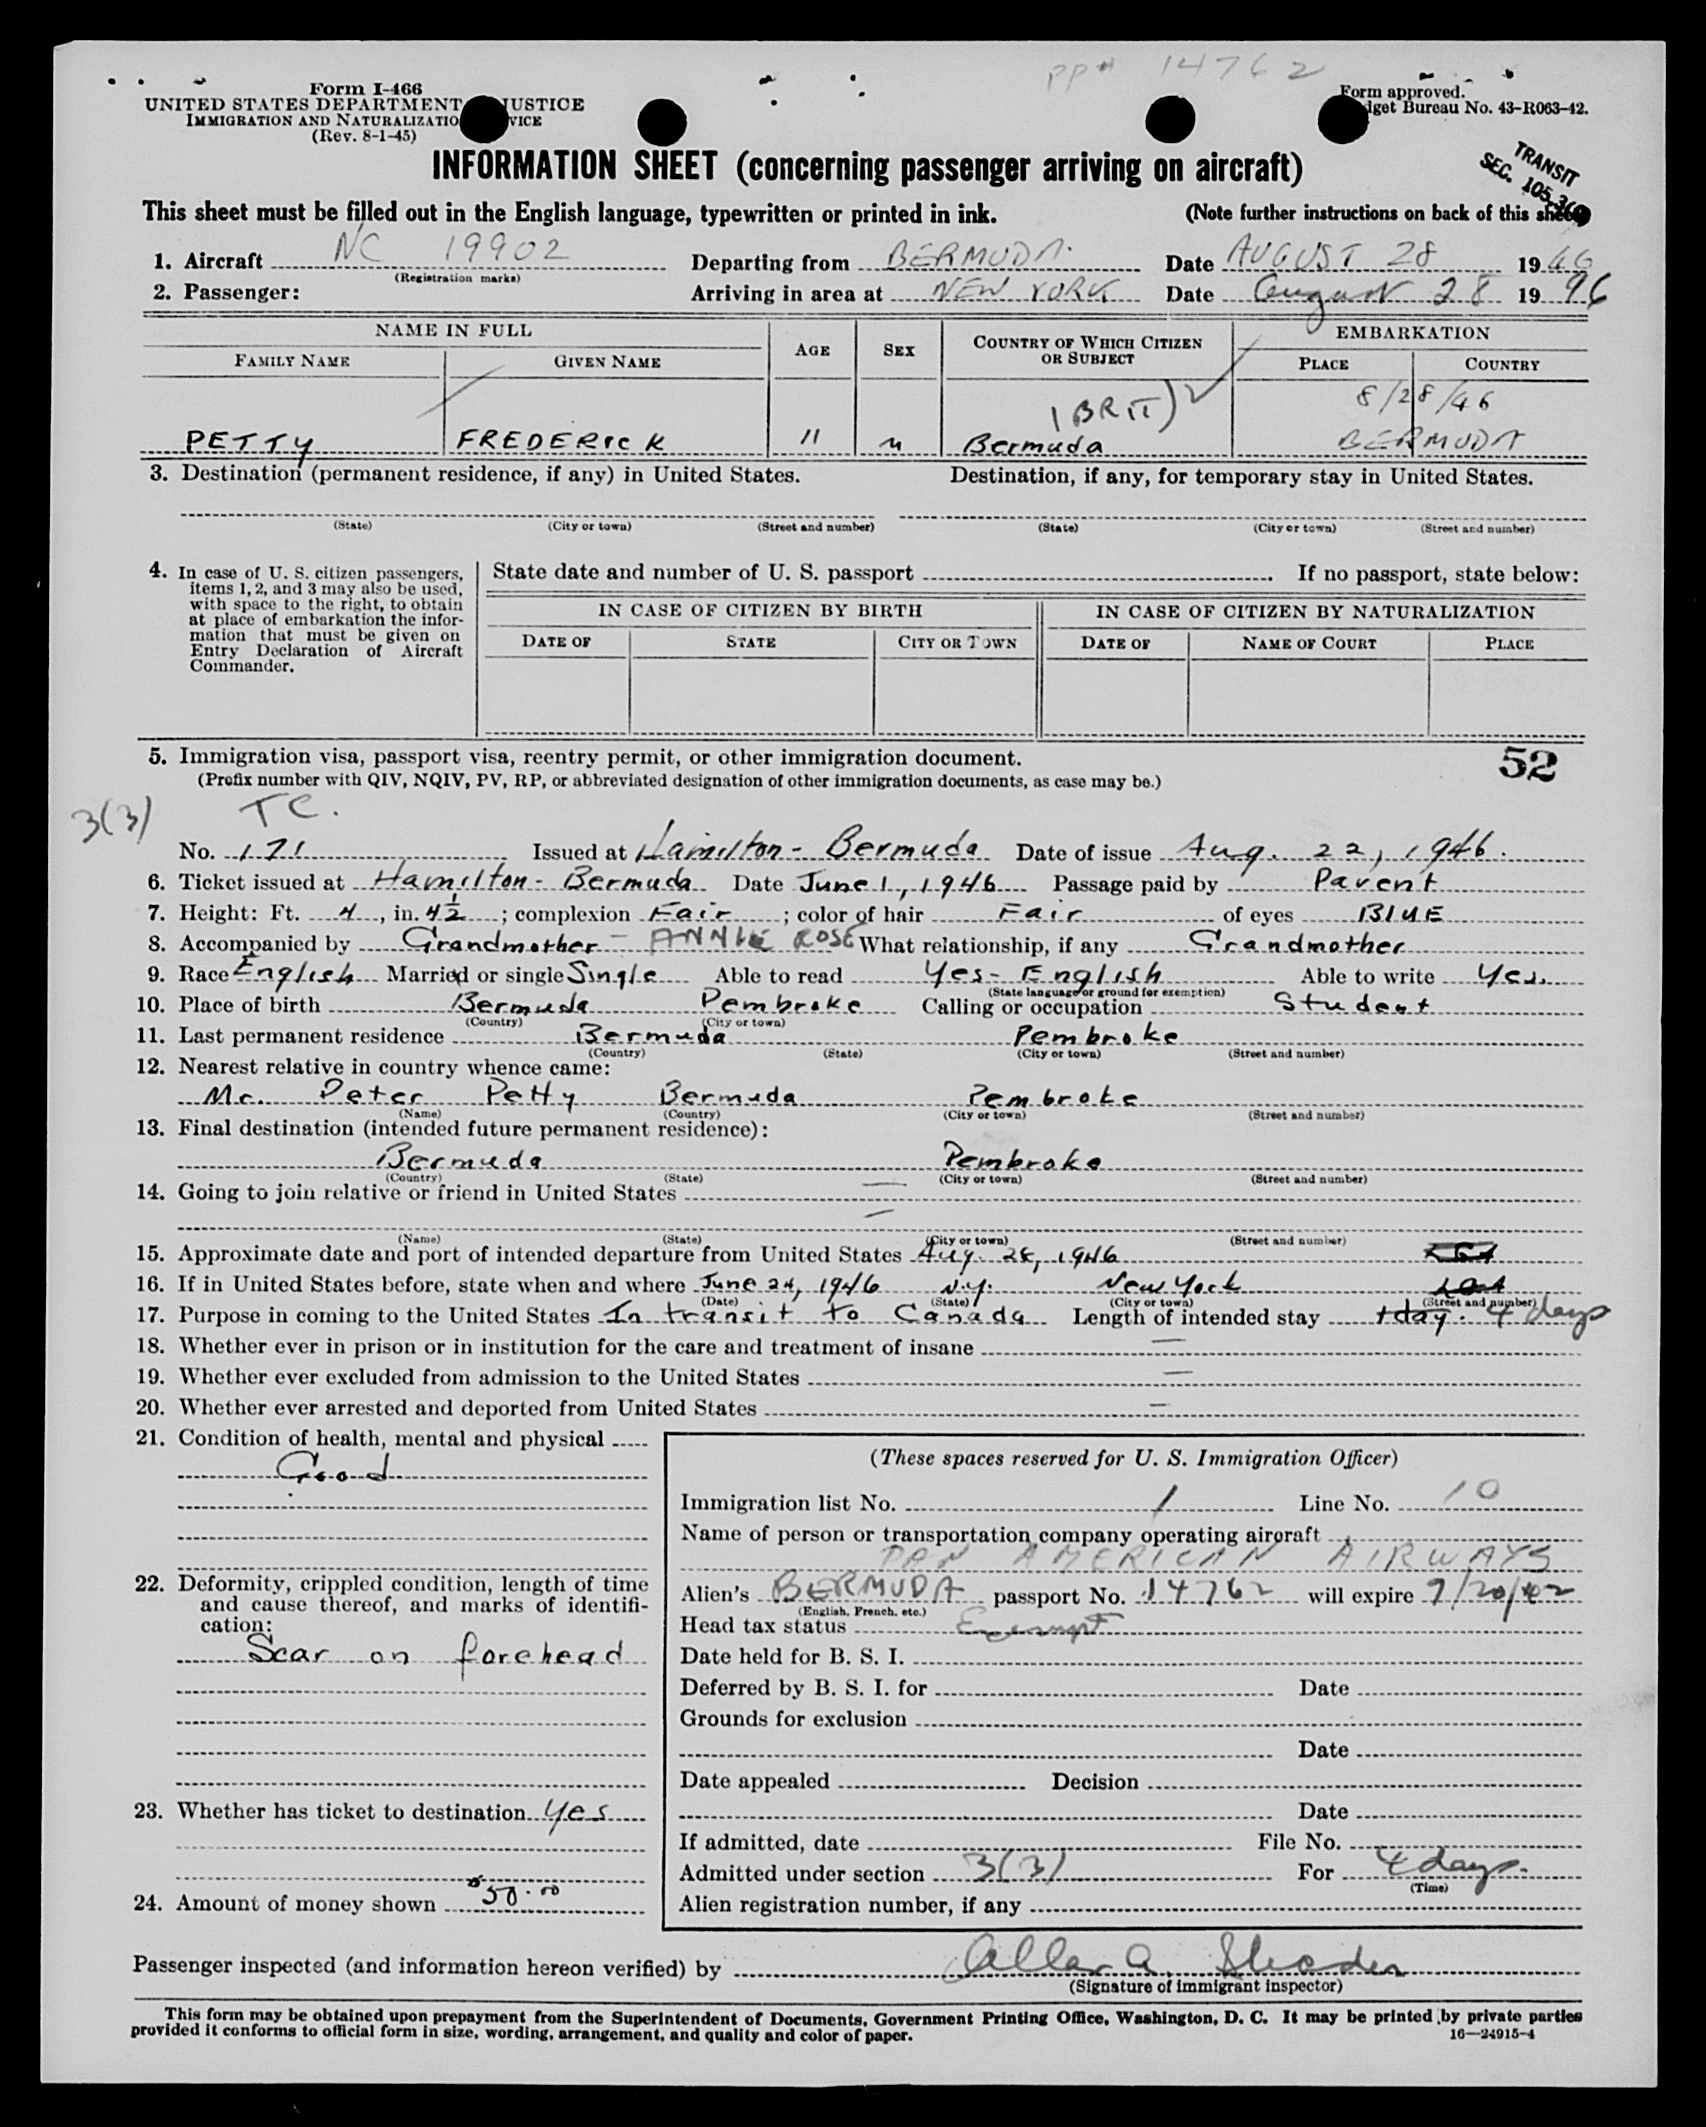 PP# 14762
Form I-466
UNITED STATES DEPARTMENT JUSTICE
IMMIGRATION AND NATURALIZATIO VICE
(Rev. 8-1-45)
Form approved.
dget Bureau No. 43-R063-42.
TRANSIT
SEC. 105.3
INFORMATION SHEET (concerning passenger arriving on aircraft)
This sheet must be filled out in the English language, typewritten or printed in ink. (Note further instructions on back of this sheet
1. Aircraft NC 19902 Departing from BERMUDA. Date AUGUST 28 1946
(Registration marks)
2. Passenger: Arriving in area at NEW YORK Date August 28 1946
NAME IN FULL AGE SEX COUNTRY OF WHICH CITIZEN OR SUBJECT EMBARKATION
FAMILY NAME GIVEN NAME PLACE COUNTRY
(BRIT) 8/28/46
PETTY FREDERICK 11 M Bermuda BERMUDA
3. Destination (permanent residence, if any) in United States. Destination, if any, for temporary stay in United States.
(State) (City or town) (Street and number) (State) (City or town) (Street and number)
4. In case of U. S. citizen passengers, items 1, 2, and 3 may also be used, with space to the right, to obtain at place of embarkation the information that must be given on Entry Declaration of Aircraft Commander.
State date and number of U. S. passport . If no passport, state below:
IN CASE OF CITIZEN BY BIRTH IN CASE OF CITIZEN BY NATURALIZATION
DATE OF STATE CITY OR TOWN DATE OF NAME OF COURT PLACE
5. Immigration visa, passport visa, reentry permit, or other immigration document. 52
(Prefix number with QIV, NQIV, PV, RP, or abbreviated designation of other immigration documents, as case may be.)
3(3) TC.
No. 171 Issued at Hamilton - Bermuda Date of issue Aug. 22, 1946.
6. Ticket issued at Hamilton - Bermuda Date June 1, 1946 Passage paid by Parent
7. Height: Ft. 4, in. 4½; complexion Fair; color of hair Fair of eyes BLUE
8. Accompanied by Grandmother - ANNIE ROSE What relationship, if any Grandmother
9. Race English Married or single Single Able to read Yes - English Able to write Yes.
(State language or ground for exemption)
10. Place of birth Bermuda Pembroke Calling or occupation Student
(Country) (City or town)
11. Last permanent residence Bermuda Pembroke
(Country) (State) (City or town) (Street and number)
12. Nearest relative in country whence came:
Mr. Peter Petty Bermuda Pembroke
(Name) (Country) (City or town) (Street and number)
13. Final destination (intended future permanent residence):
Bermuda Pembroke
(Country) (State) (City or town) (Street and number)
14. Going to join relative or friend in United States —
—
(Name) (State) (City or town) (Street and number)
15. Approximate date and port of intended departure from United States Aug. 28, 1946
16. If in United States before, state when and where June 24, 1946 N.Y. New York
(Date) (State) (City or town) (Street and number)
17. Purpose in coming to the United States In transit to Canada Length of intended stay 1 day. 4 days
18. Whether ever in prison or in institution for the care and treatment of insane —
19. Whether ever excluded from admission to the United States —
20. Whether ever arrested and deported from United States —
21. Condition of health, mental and physical
Good
22. Deformity, crippled condition, length of time and cause thereof, and marks of identification:
Scar on forehead
23. Whether has ticket to destination Yes
24. Amount of money shown $50.00
(These spaces reserved for U. S. Immigration Officer)
Immigration list No. 1 Line No. 10
Name of person or transportation company operating aircraft
PAN AMERICAN AIRWAYS
Alien's BERMUDA passport No. 14762 will expire
(English, French, etc.)
Head tax status Exempt
Date held for B. S. I.
Deferred by B. S. I. for Date
Grounds for exclusion
Date
Date appealed Decision
Date
If admitted, date File No.
Admitted under section 3(3) For 4 days.
(Time)
Alien registration number, if any
Passenger inspected (and information hereon verified) by
(Signature of immigrant inspector)
This form may be obtained upon prepayment from the Superintendent of Documents, Government Printing Office, Washington, D. C. It may be printed by private parties
provided it conforms to official form in size, wording, arrangement, and quality and color of paper. 16—24915-4